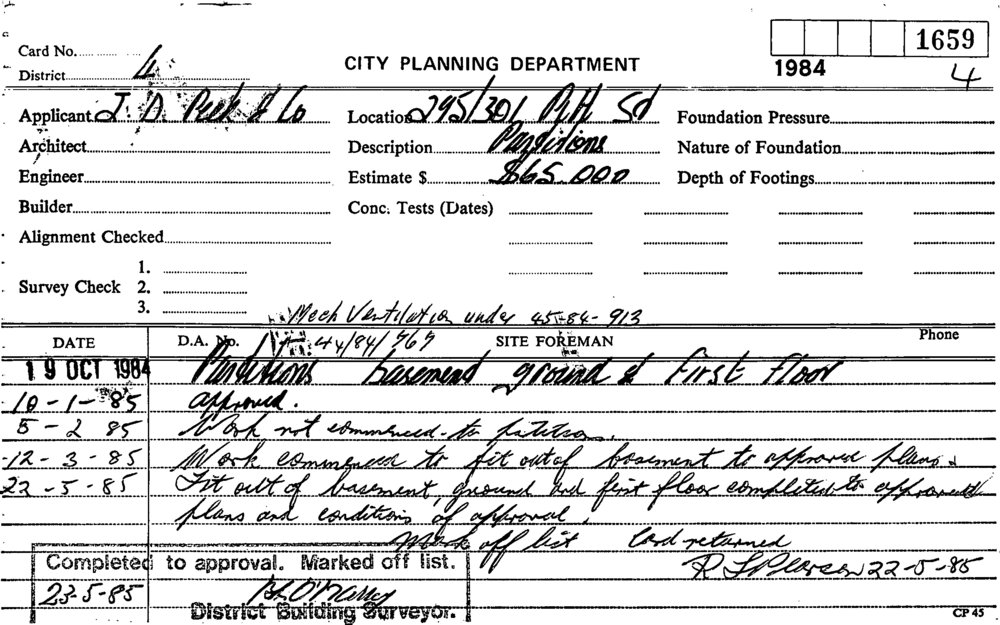 1659
Card No.
District 4
CITY PLANNING DEPARTMENT
1984
4
Applicant J. D. Peek & Co
Location 295/301 Pitt St
Foundation Pressure
Architect
Description Partitions
Nature of Foundation
Engineer
Estimate $ $65.000
Depth of Footings
Builder
Conc. Tests (Dates)
Alignment Checked
Survey Check
1.
2.
3.
Mech Ventilation under 45-84-913
DATE
D.A. No. 44/84/767
SITE FOREMAN
Phone
19 OCT 1984 Partitions basement ground & first floor
10-1-85 approved.
5-2 85 Work not commenced to
12-3-85 Work commenced to fit out of basement to approved plans.
22-5-85 Fit out of basement, ground and first floor completed to approved
plans and conditions of approval.
Mark off list Card returned
Completed to approval. Marked off list.
22-5-85
23-5-85
District Building Surveyor.
CP 45